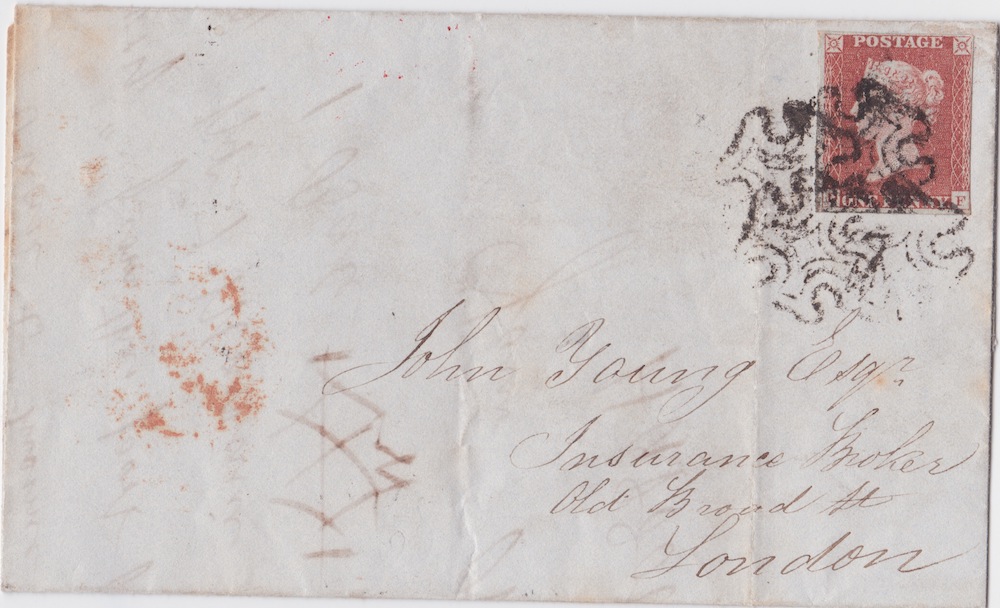 POSTAGE
ONE PENNY
F
John Young Esqr
Insurance Broker
Old Broad St
London